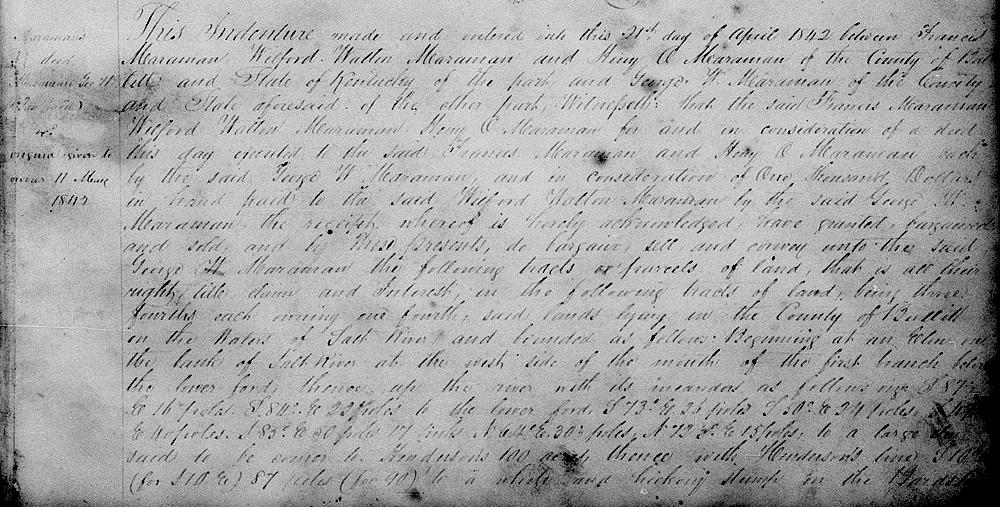 Maraman's
deed
Maraman Geo W
original given to
owner 11 
1842
This Indenture made and entered into this 21st day of April 1842 between Francis
Maraman, Wilford Watton Maraman and Heny Q Maraman of the County of Bul
litt and State of Kentucky of the part and George W. Maraman of the County
and State aforesaid of the other part, Witnesseth: that the said Francis Maraman
Wilford Watton Maraman Heny Q Maraman for and in consideration of a deed
this day executed to the said Francis Maraman and Heny Q Maraman each
by the said George W Maraman, and in consideration of One thousand Dollars
in hand paid to the said Wilford Watton Maraman by the said George W.
Maraman, the receipt whereof is hereby acknowledged, have granted, bargained
and sold, and by these presents, do bargain, sell and convey unto the said
George W Maraman the following tracts or parcels of land, that is all their
right, title, claim and Interest, in the following tracts of land, being three
fourths each owning one fourth, said lands lying in the County of Bullitt
on the Waters of Salt River and bounded as follows: Beginning at an Elm on
the bank of Salt River at the west side of the mouth of the first branch below
the lower ford, thence up the river with its meanders as follows S 87°
E 16 poles. S. 84° E 22 poles to the lower ford, S 73° E 26 poles S 50° E 24 poles.
E 40 poles. S 85° E 50 poles 17 links N E 30 poles, N 72 E. 15 poles, to a large
said to be corner to Hendersons 100 acres, thence with Hendersons line S 10
(for S10 E) 87 poles (for 90) to a white and hickory stump in the